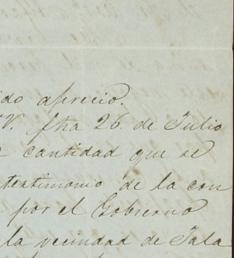 ido aprecio.
V. fha 26. de Julio
cantidad que se
testimonio de la con
por el Gobierno
la vecindad de Tala